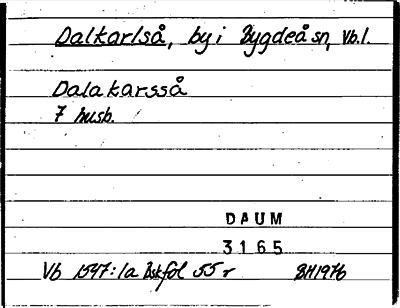 Dalkarlså, by i Bygdeå sn, Vb.l.
Dalakarsså
7 husb.
DAUM
3165
Vb 1547:1a Bskfol 55 r BH1976